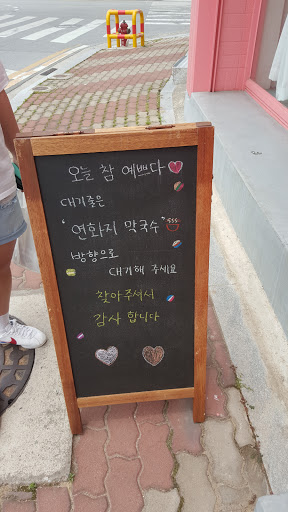 오늘 참 예쁘다
대기줄은
'연화지 막국수'
방향으로
대기해 주세요
찾아주셔서
감사 합니다